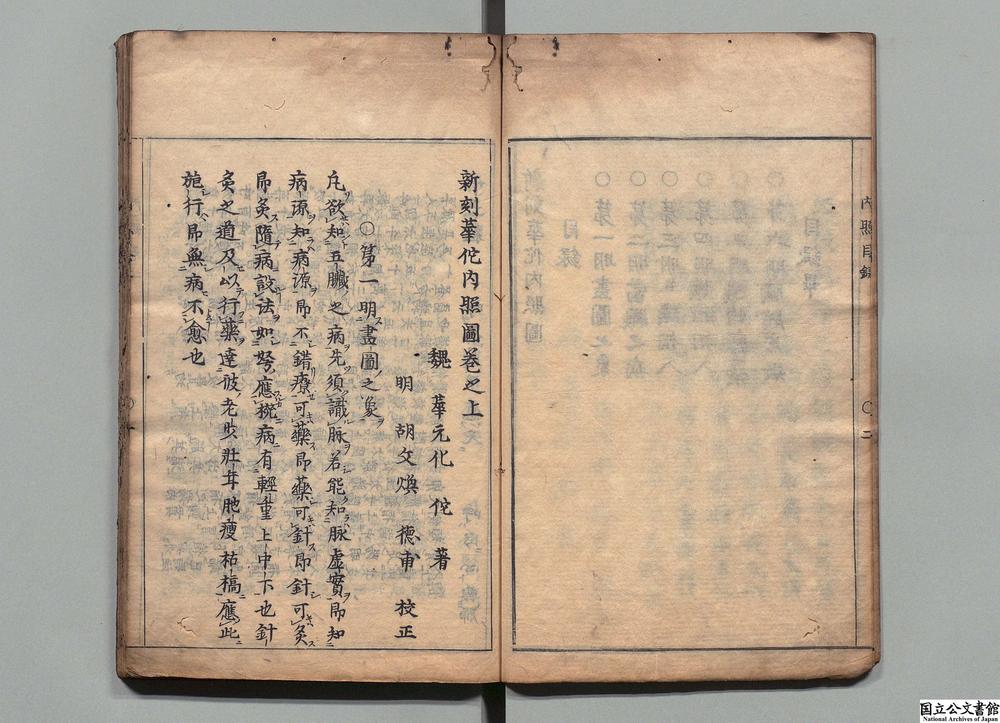 内照目録
〇二
新刻華佗内照圖卷之上
魏 華元化 佗 著
明 胡文煥 德甫 校正
〇第一明畫圖之象
凡欲知五臟之病先須識脉若能知脉虛實即知
病源知病源即不錯療可藥即藥可針即針可灸
即灸隨病設法如弩應機病有輕重上中下也針
灸之道及以行藥達彼老少壯年肥瘦枯槁應此
施行即無病不愈也
国立公文書館
National Archives of Japan